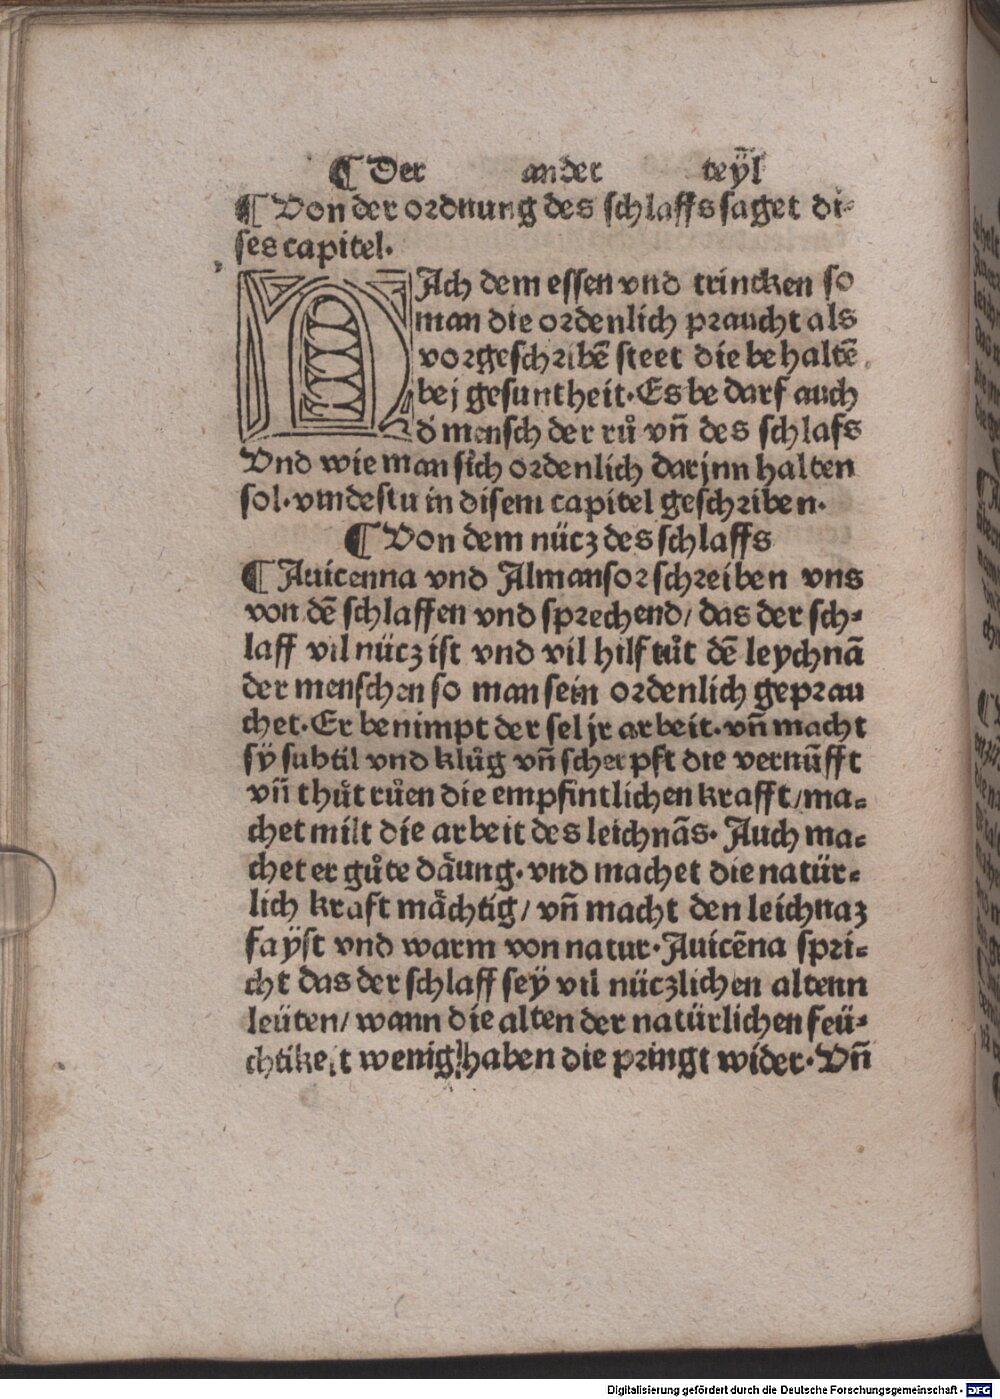 ¶ Der ander teÿl
¶ Von der ordnung des schlaffs saget di-
ses capitel.
NAch dem essen vnd trincken so
man die ordenlich praucht als
vorgeschribē steet die behaltē
bej gesuntheit. Es bedarf auch
d mensch der rů vñ des schlafs
Vnd wie man sich ordenlich darjnn halten
sol. vindestu in disem capitel geschriben.
¶ Von dem nücz des schlaffs
¶ Auicenna vnd Almansor schreiben vns
von dē schlaffen vnd sprechend/ das der sch-
laff vil nücz ist vnd vil hilf tůt dē leychnā
der menschen so man sein ordenlich geprau
chet. Er benimpt der sel jr arbeit. vñ macht
sÿ subtil vnd klůg vñ scherpft die vernūfft
vñ thůt růen die empfintlichen krafft/ ma-
chet milt die arbeit des leichnās. Auch ma-
chet er gůte däung. vnd machet die natür-
lich kraft mächtig/ vñ macht den leichnaz
faÿst vnd warm von natur. Auicēna spri-
cht das der schlaff seÿ vil nüczlichen altenn
leüten/ wann die alten der natürlichen feü-
chtikeit wenig haben die pringt wider. Vñ
Digitalisierung gefördert durch die Deutsche Forschungsgemeinschaft - DFG